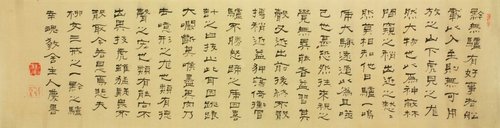 黔無驢有好事者船
載以入至則無可用
放之山下虎見之尨
然大物也以為神蔽林
間窺之稍出近之慭慭
然莫相知他日驢一鳴
虎大駭遠遁以為且噬
己也甚恐然往來視之
覺無異能者益習其
聲又近出前後終不敢
搏稍近益狎蕩倚衝冒
驢不勝怒蹄之虎因喜
計之曰技止此耳因跳踉
大㘎斷其喉盡其肉乃
去噫形之尨也類有德
聲之宏也類有能向不
出其技虎雖猛疑畏卒不
敢取今若是焉悲夫
柳文三戒之一黔之驢
主人慶書